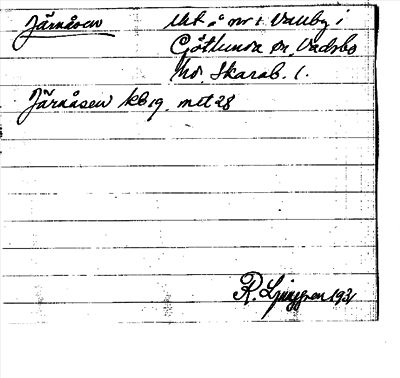 Järnåsen Ut å nr 1 Vallby i
Götlunda sn, Vadsbo
hd. Skarab. l.
Järnåsen kb 19 mtl 28
R. Ljunggren 1931